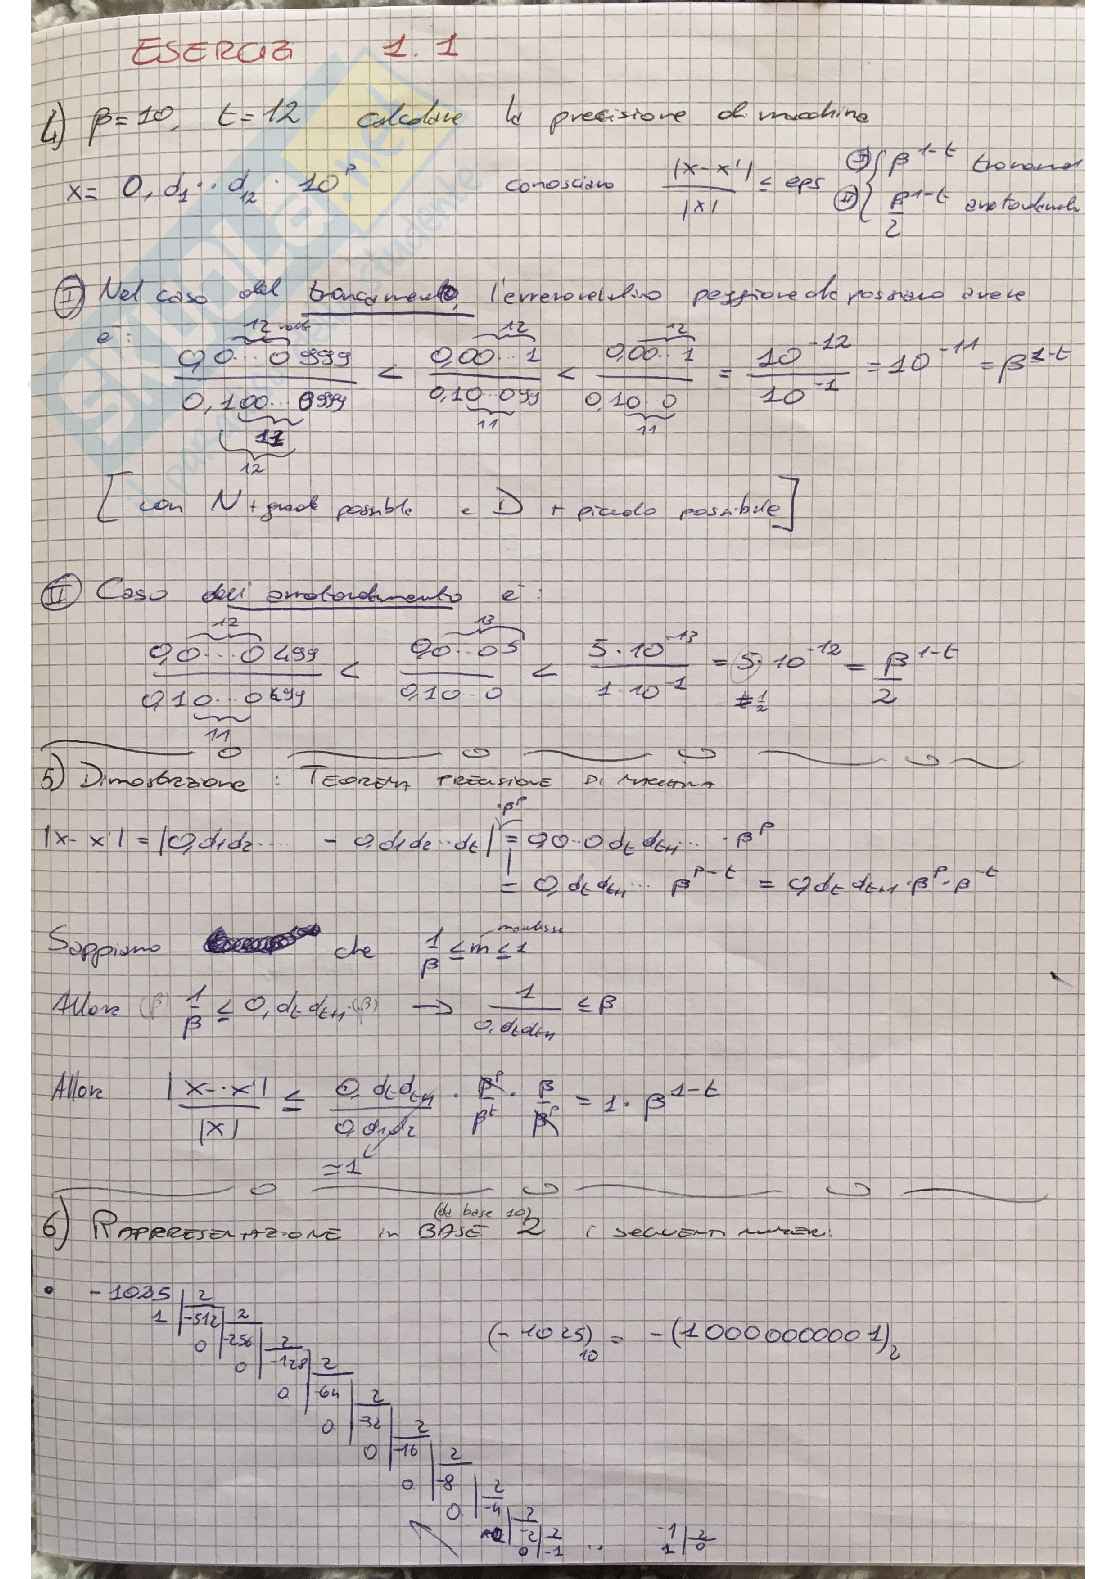 ESERCIZI 1.1
4) β=10, t=12 calcolare la precisione di macchina
x= 0,d₁··d₁₂ · 10^p conosciamo |x-x'|/|x| ≤ eps Ⓘ { β^(1-t) troncamento
Ⓘ Ⓘ { β^(1-t)/2 arrotondamento
Ⓘ Nel caso del troncamento, l'errore relativo peggiore che possiamo avere
è: 0,0...0999/0,100...0999 < 0,00...1/0,10...099 < 0,00...1/0,10...0 = 10^-12/10^-1 = 10^-11 = β^(1-t)
[con N + grande possibile e D + piccolo possibile]
II Caso dell'arrotondamento è:
0,0...0499/0,10...0499 < 0,0...05/0,10...0 < 5·10^-13/1·10^-1 = 5·10^-12 = β^(1-t)/2
5) Dimostrazione: TEOREMA PRECISIONE DI MACCHINA
|x-x'| = |0,d₁d₂..... - 0,d₁d₂··dt| ·β^p = 0,0··0 dt dt+1... ·β^p
= 0,dt dt+1... β^(p-t) = 0,dt dt+1·β^p·β^-t
Sappiamo che 1/β ≤ m ≤ 1 mantissa
Allora (β) 1/β ≤ 0,dt dt+1 (β) → 1/0,dt dt+1 ≤ β
Allora |x-x'|/|x| ≤ 0,dt dt+1/0,d₁d₂ · β^p/β^t · β/β^p = 1·β^(1-t)
≃1
6) RAPPRESENTAZIONE in BASE 2 (da base 10) i SEGUENTI NUMERI:
• -1025 | 2
1 | -512 | 2
0 | -256 | 2 (-1025)₁₀ = -(10000000001)₂
0 | -128 | 2
0 | -64 | 2
0 | -32 | 2
0 | -16 | 2
0 | -8 | 2
0 | -4 | 2
0 | -2 | 2
0 | -1 .. -1 | 2
1 | 0